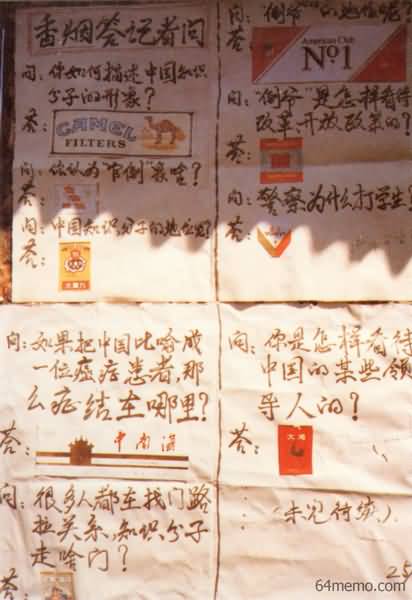 香烟答记者问
问：你如何描述中国知识
分子的形象？
答：
CAMEL
FILTERS
问：你认为"官倒"象啥？
答：
问：中国知识分子的地位呢？
答：
问："倒爷"的地位呢？
答：
American Club
Nº1
问："倒爷"是怎样看待
改革、开放政策的？
答：
问：警察为什么打学生？
答：
问：如果把中国比喻成
一位癌症患者，那
么症结在哪里？
答：
中南海
问：很多人都在找门路
拉关系，知识分子
走啥门？
答：
问：你是怎样看待
中国的某些领
导人的？
答：
大鸡
（未完待续）
25
64memo.com